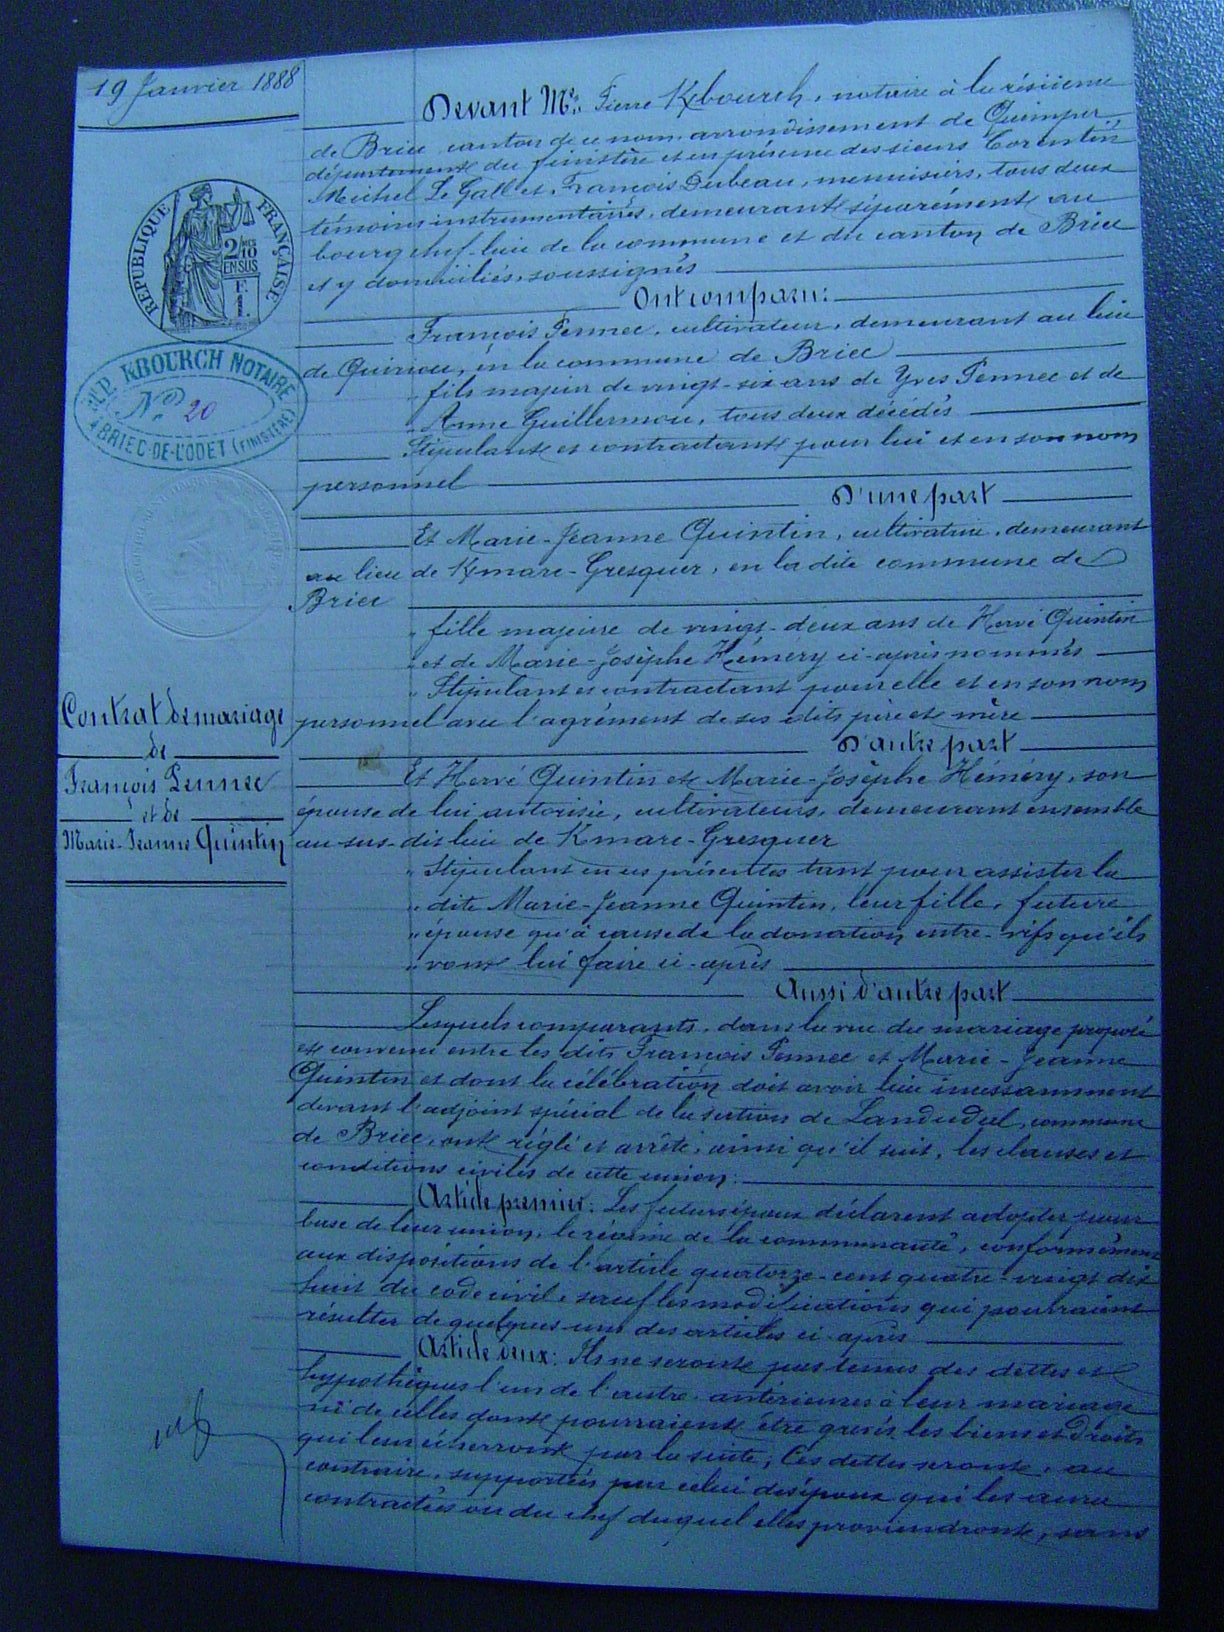 19 Janvier 1888
REPUBLIQUE FRANÇAISE
2/10
EN SUS
F.
1.
P. KBOURCH NOTAIRE
No 20
A BRIEC-DE-L'ODET (FINISTÈRE)
Contrat de mariage
de
François Pennec
et de
Marie-Jeanne Quintin
Devant Me Pierre Kbourch, notaire à la résidence
de Briec canton de ce nom, arrondissement de Quimper,
département du finistère et en présence des sieurs Corentin
Michel Le Gall et François Dubeau, menuisiers, tous deux
témoins instrumentaires, demeurant séparément au
bourg chef-lieu de la commune et du canton de Briec
et y domiciliés, soussignés
Ont comparu:
François Pennec, cultivateur, demeurant au lieu
de Quiniou, en la commune de Briec
" fils majeur de vingt-six ans de Yves Pennec et de
" Anne Guillermou, tous deux décédés
Stipulant et contractant pour lui et en son nom
personnel
D'une part
Et Marie-Jeanne Quintin, cultivatrice, demeurant
au lieu de Kmare-Gresquer, en la dite commune de
Briec
" fille majeure de vingt-deux ans de Hervé Quintin
" et de Marie-Josèphe Héméry ci-après nommés
" Stipulant et contractant pour elle et en son nom
personnel avec l'agrément de ses dits père et mère
D'autre part
Et Hervé Quintin et Marie-Josèphe Héméry, son
épouse de lui autorisée, cultivateurs, demeurant ensemble
au sus-dit lieu de Kmare-Gresquer
" Stipulant en ces présentes tant pour assister la
" dite Marie-Jeanne Quintin, leur fille, future
" épouse qu'à cause de la donation entre-vifs qu'ils
" vont lui faire ci-après
Aussi d'autre part
Lesquels comparants, dans la vue du mariage proposé
et convenu entre les dits François Pennec et Marie-Jeanne
Quintin et dont la célébration doit avoir lieu incessamment
devant l'adjoint spécial de la section de Landudal, commune
de Briec, ont réglé et arrêté, ainsi qu'il suit, les clauses et
conditions civiles de cette union:
Article premier: Les futurs époux déclarent adopter pour
base de leur union, le régime de la communauté, conformément
aux dispositions de l'article quatorze-cent quatre-vingt dix
huit du code civil, sauf les modifications qui pourraient
résulter de quelques uns des articles ci-après
Article deux: Ils ne seront pas tenus des dettes et
hypothèques l'un de l'autre antérieures à leur mariage
ni de celles dont pourraient être grevés les biens et droits
qui leur écherront par la suite; Ces dettes seront, au
contraire, supportées par celui des époux qui les aura
contractées ou du chef duquel elles proviendront, sans